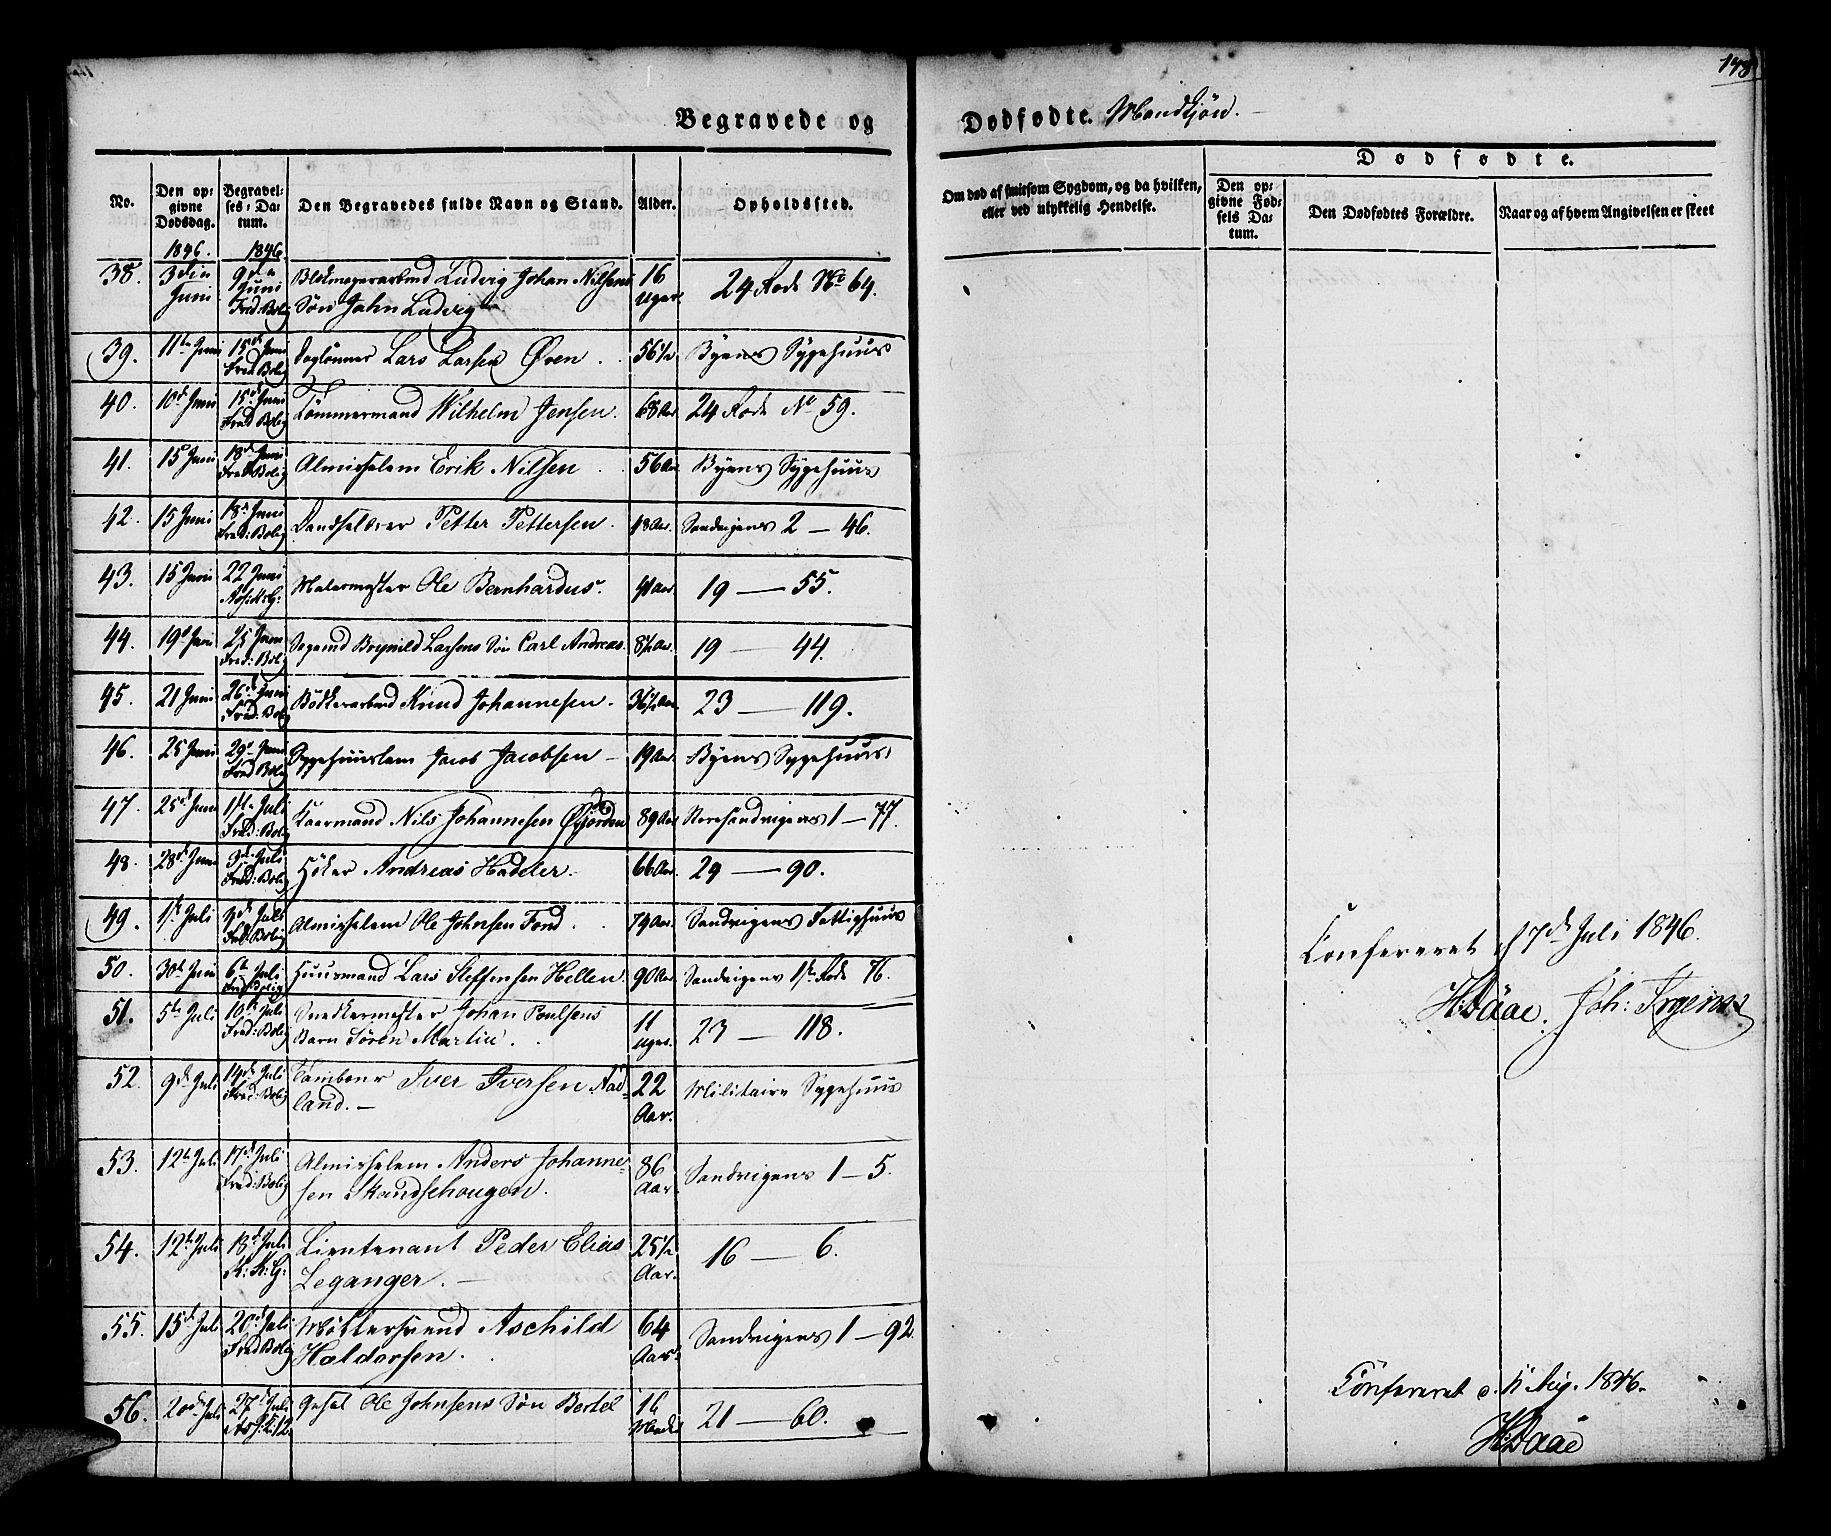 148
Begravede og Dødfødte. Mandkjøn.
No.
Den op-
givne
Dødsdag.
Begravel-
ses-Da-
tum.
Den Begravedes fulde Navn og Stand.
Alder.
Opholdssted.
Om død af smitsom Sygdom, og da hvilken,
eller ved ulykkelig Hendelse.
Dødfødte.
Den op-
givne Fød-
sels Da-
tum.
Den Dødfødtes Forældre.
Naar og af hvem Angivelsen er skeet
1846. 1846.
38. 3die Juni 9de Juni Fred: Bolig Blokmagersvend Ludvig Johan Nilsens Søn John Ludvig 16 Uger 24 Rode No 64.
39. 11te Juni 15de Juni Fred Bolig Daglønner Lars Larsen Øven 56½ Byens Sygehuus
40. 10de Juni 15de Juni Fred Bolig Tømmermand Wilhelm Jensen. 68 Aar. 24 Rode No 59.
41. 15 Juni 18de Juni Fred Bolig Almisselem Erik Nilsen 56 Aar Byens Sygehuus
42. 15 Juni 18de Juni Fred: Bolig Petter Pettersen. 48 Aar. Sandvigens 2 — 46.
43. 15 Juni 22 Juni Malermester Ole Bernhardus. 41 Aar. 19 — 55.
44. 19de Juni 25 Juni Fred: Bolig Brynild Larsens Søn Carl Andreas. 8½ Aar. 19 — 44.
45. 21 Juni 26de Juni Fred: Bolig Bødkersvend Knud Johannesen. 36½ Aar. 23 — 119.
46. 25 Juni 29de Juni Fred Bolig Sygehuuslem Jacob Jacobsen — 19 Aar. Byens Sygehuus
47. 25de Juni 1ste Juli Fred: Bolig Kaarmand Nils Johannesen 89 Aar Storesandvigens 1 — 77.
48. 28de Juni 3de Juli Fred: Bolig Høker Andreas Hadeler. 66 Aar. 24 — 90.
49. 1ste Juli 3de Juli Fred Bolig Almisselem Ole Johnsen Fond. 79 Aar. Sandvigens Fattighuus
50. 30te Juni 6te Juli Fred Bolig Huusmand Lars Steffensen Hellen. 90 Aar. Sandvigens 1ste Rode 76.
51. 5te Juli 10de Juli Fred: Bolig Snedkermester Johan Poulsens Barn Søren Martin. 11 Uger. 23 — 118.
52. 9de Juli 14de Juli Fred: Bolig Tambour Iver Iversen Aad-
land. — 22 Aar. Militaire Sygehuus
53. 12te Juli 17de Juli Fred: Bolig Almisselem Anders Johanne-
sen Skandsehougen. 86 Aar. Sandvigens 1 — 5.
54. 12te Juli 18de Juli K: K: G: Lieutenant Peder Elias
Leganger. — 25½ Aar. 16 — 6.
55. 15de Juli 20de Juli Fred Bolig Møllersvend Aschild
Haldorsen. 64 Aar. Sandvigens 1 — 92.
56. 20de Juli 27de Juli Ole Johnsens Søn Bertel 16 21 — 60.
Confereret 17de Juli 1846.
H: Daae. Joh: Irgens
Confereret d. 11 Aug. 1846.
H: Daae